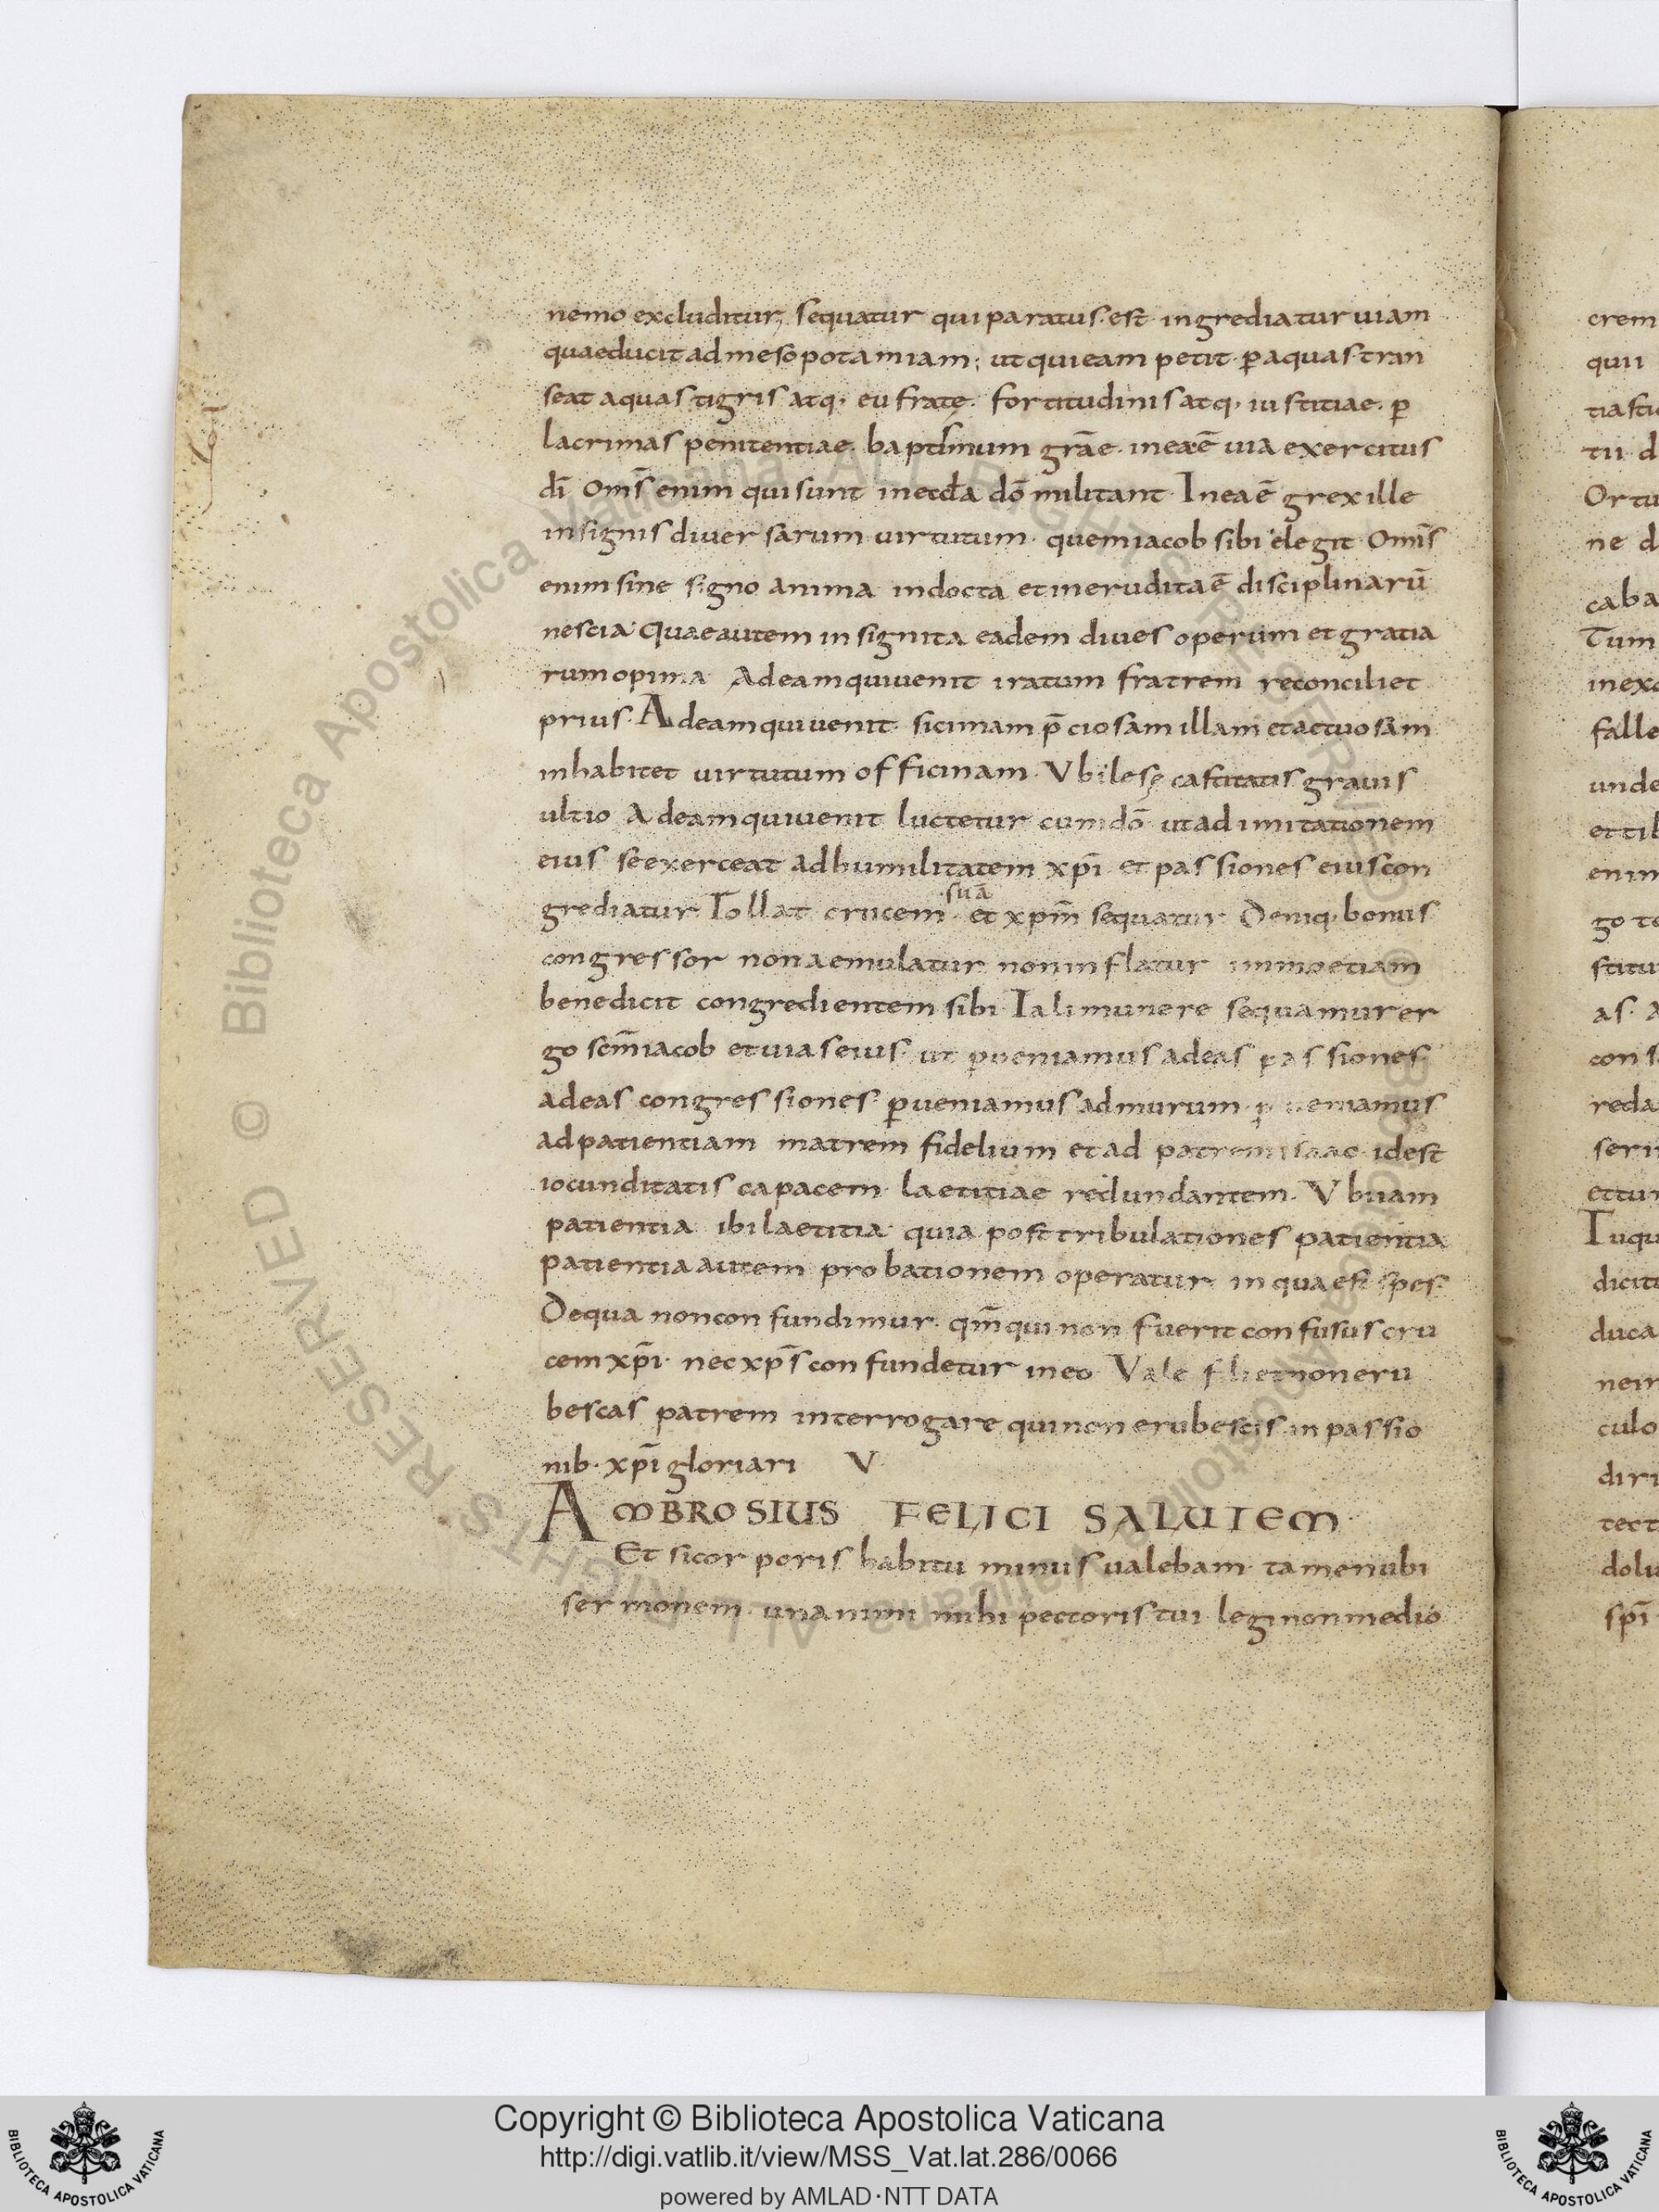 nemo excluditur; sequatur qui paratus est ingrediatur uiam
quae ducit ad mesopotamiam; ut qui eam petit p̄ aquas tran
seat aquas tigris atq· eufratę· fortitudinis atq· iustitiae· p̄
lacrimas penitentiae· baptismum grāe· in ea ē uia exercitus
dī Om̄s enim qui sunt in eccl̄a dō militant In ea ē grex ille
insignis diuersarum uirtutum· quem iacob sibi elegit Om̄s
enim sine signo anima indocta et inerudita ē disciplinarū
nescia· Quae autem insignita eadem diues operum et gratia
rum opima Ad eam qui uenit iratum fratrem reconciliet
prius· Ad eam qui uenit· sicimam p̄ciosam illam et actuosam
inhabitet uirtutum officinam· Vbi lesę castitatis grauis
ultio Ad eam qui uenit luctetur cum dō ut ad imitationem
eius se exerceat ad humilitatem xp̄i et passiones eius con
grediatur Tollat crucem ·suā· et xpm̄ sequatur Deniq· bonus
congressor non aemulatur non inflatur immo etiam
benedicit congredientem sibi Tali munere sequamur er
go scm̄ iacob et uias eius· ut p̄ueniamus ad eas passiones
ad eas congressiones p̄ueniamus ad murum p̄ueniamus
ad patientiam matrem fidelium et ad patrem isaac· idest
iocunditatis capacem laetitiae redundantem· Vbi iam
patientia ibi laetitia quia post tribulationes patientia
patientia autem probationem operatur in qua est spes·
De qua non confundimur· qm̄ qui non fuerit confusus cru
cem xp̄i· nec xp̄s confundetur in eo Vale fili et non eru
bescas patrem interrogare qui non erubescis in passio
nib· xp̄i gloriari V
AMBROSIUS FELICI SALUTEM
Et si corporis habitu minus ualebam· tamen ubi
sermonem unanimi mihi pectoris tui legi non medio
crem
qui i
tii d
Ortu
ne d
caba
Tum
falle
unde
enim
go te
as· A
reda
seri
ettur
Tu qu
dicit
duca
culo
diri
tect
dolu
sp̄i
© Biblioteca Apostolica Vaticana ALL RIGHTS RESERVED © Biblioteca Apostolica Vaticana ALL RIGHTS RESERVED
Copyright © Biblioteca Apostolica Vaticana
http://digi.vatlib.it/view/MSS_Vat.lat.286/0066
powered by AMLAD·NTT DATA
BIBLIOTECA APOSTOLICA VATICANA
BIBLIOTECA APOSTOLICA VATICANA